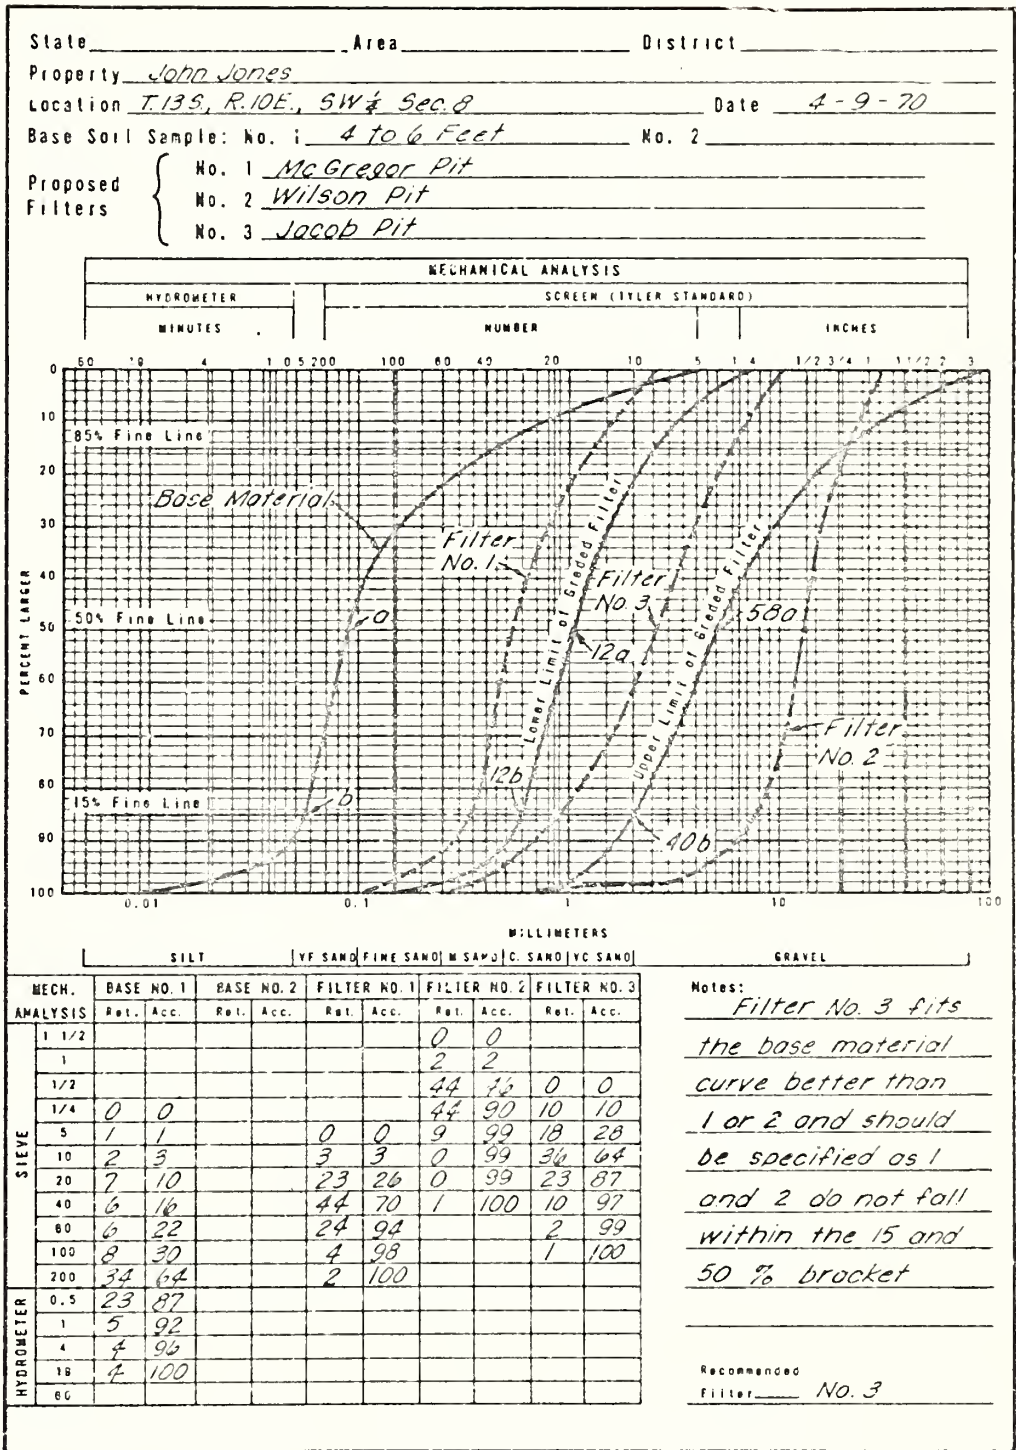 State Area District
Property John Jones
Location T.13S, R.10E., SW ¼ Sec. 8 Date 4-9-70
Base Soil Sample: No. 1 4 to 6 Feet No. 2
Proposed Filters
No. 1 McGregor Pit
No. 2 Wilson Pit
No. 3 Jacob Pit
MECHANICAL ANALYSIS
HYDROMETER SCREEN (TYLER STANDARD)
MINUTES NUMBER INCHES
60 19 4 1 0.5 200 100 60 40 20 10 5 1/4 1/2 3/4 1 1 1/2 2 3
PERCENT LARGER
0
10
85% Fine Line
20
Base Material
30
Filter No. 1
40
Filter No. 3
Lower Limit of Graded Filter
Upper Limit of Graded Filter
50% Fine Line a 58a
50
12a
60
70
Filter No. 2
80
12b
15% Fine Line b
90
40b
100
0.01 0.1 1 10 100
MILLIMETERS
SILT VF SAND FINE SAND M SAND C. SAND VC SAND GRAVEL
MECH. ANALYSIS BASE NO. 1 BASE NO. 2 FILTER NO. 1 FILTER NO. 2 FILTER NO. 3
Ret. Acc. Ret. Acc. Ret. Acc. Ret. Acc. Ret. Acc.
SIEVE
1 1/2 0 0
1 2 2
1/2 44 46 0 0
1/4 0 0 44 90 10 10
5 1 1 0 0 9 99 18 28
10 2 3 3 3 0 99 36 64
20 7 10 23 26 0 99 23 87
40 6 16 44 70 1 100 10 97
60 6 22 24 94 2 99
100 8 30 4 98 1 100
200 34 64 2 100
HYDROMETER
0.5 23 87
1 5 92
4 4 96
19 4 100
60
Notes:
Filter No. 3 fits
the base material
curve better than
1 or 2 and should
be specified as 1
and 2 do not fall
within the 15 and
50 % bracket
Recommended
Filter No. 3